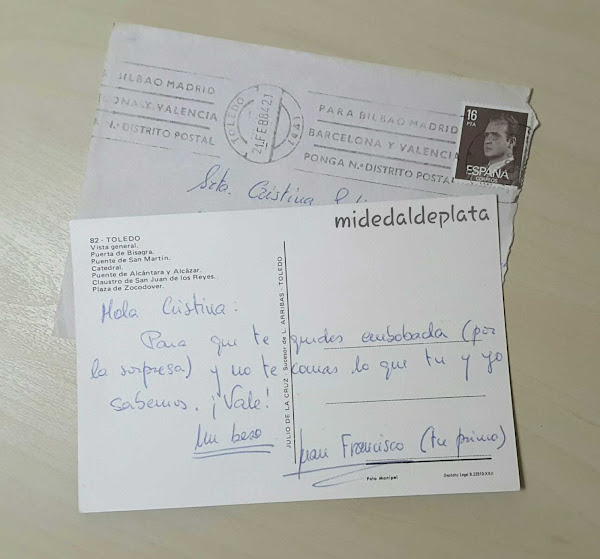 PARA BILBAO MADRID
BARCELONA Y VALENCIA
PONGA N.º DISTRITO POSTAL
TOLEDO
21.FEB 84.21
16
PTA
ESPAÑA
CORREOS
BILBAO MADRID
ONA Y VALENCIA
N.º DISTRITO POSTAL
Srta. Cristina
midedaldeplata
82 - TOLEDO
Vista general.
Puerta de Bisagra.
Puente de San Martín.
Catedral.
Puente de Alcántara y Alcázar.
Claustro de San Juan de los Reyes.
Plaza de Zocodover.
Hola Cristina:
Para que te quedes embobada (por
la sorpresa) y no te comas lo que tu y yo
sabemos. ¡Vale!
Un beso
Juan Francisco (tu primo)
JULIO DE LA CRUZ - Sucesor de L. ARRIBAS - TOLEDO
Foto Manipel